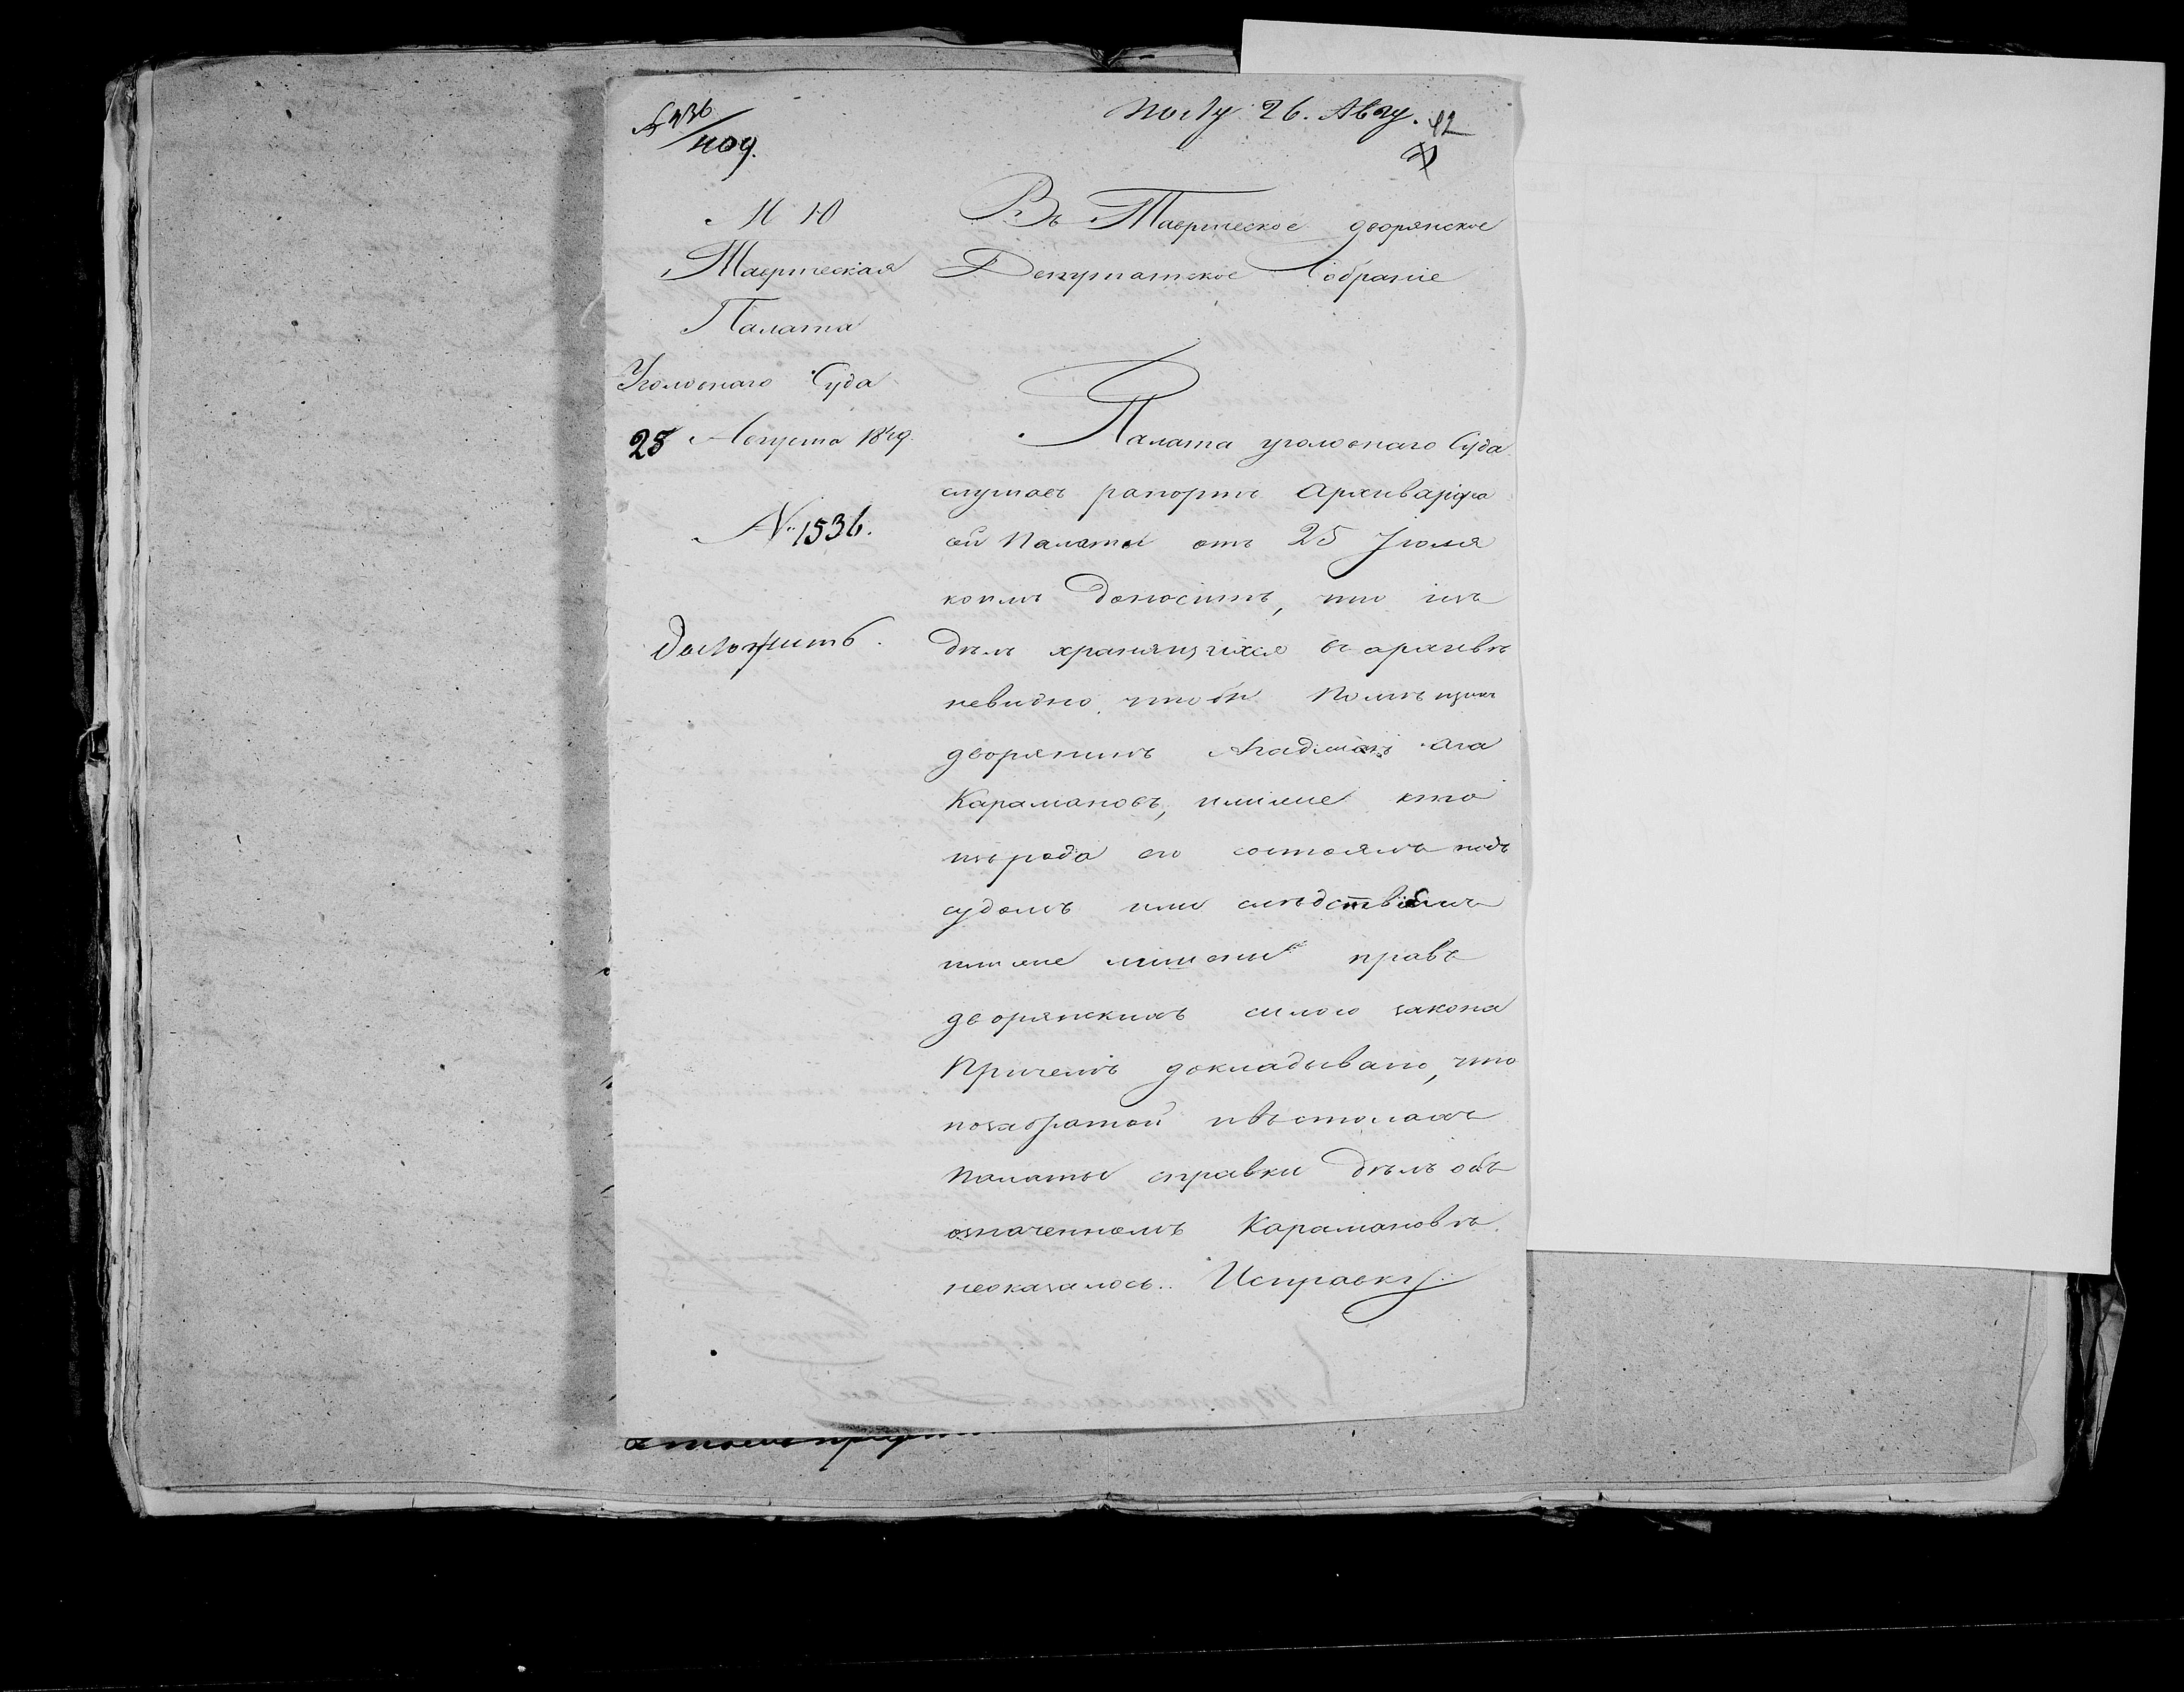 1109.
Полу 26. Авгу. 42
М Ю
Таврическая
Палата
Уголовнаго Суда
28 Августа 1849.
№ 1536.
Доложить.
Въ Таврическое дворянское
Депутатское Собраніе
Палата уголовнаго Суда
слушавъ рапортъ Архиваріуса
сей Палаты отъ 25 Іюля
коимъ доноситъ, что изъ
дѣлъ хранящихся въ архивѣ
невидно чтобы
дворянинъ ага
Карамановъ, илиже кто
изъ рода его состоялъ подъ
судомъ или слѣдствіемъ
илиже лишены правъ
дворянскихъ силою закона
Причемъ докладывано, что
позабратой изъ столахъ
Палаты справки дѣлъ объ
означенномъ Карамановѣ
неоказалось. Исправку